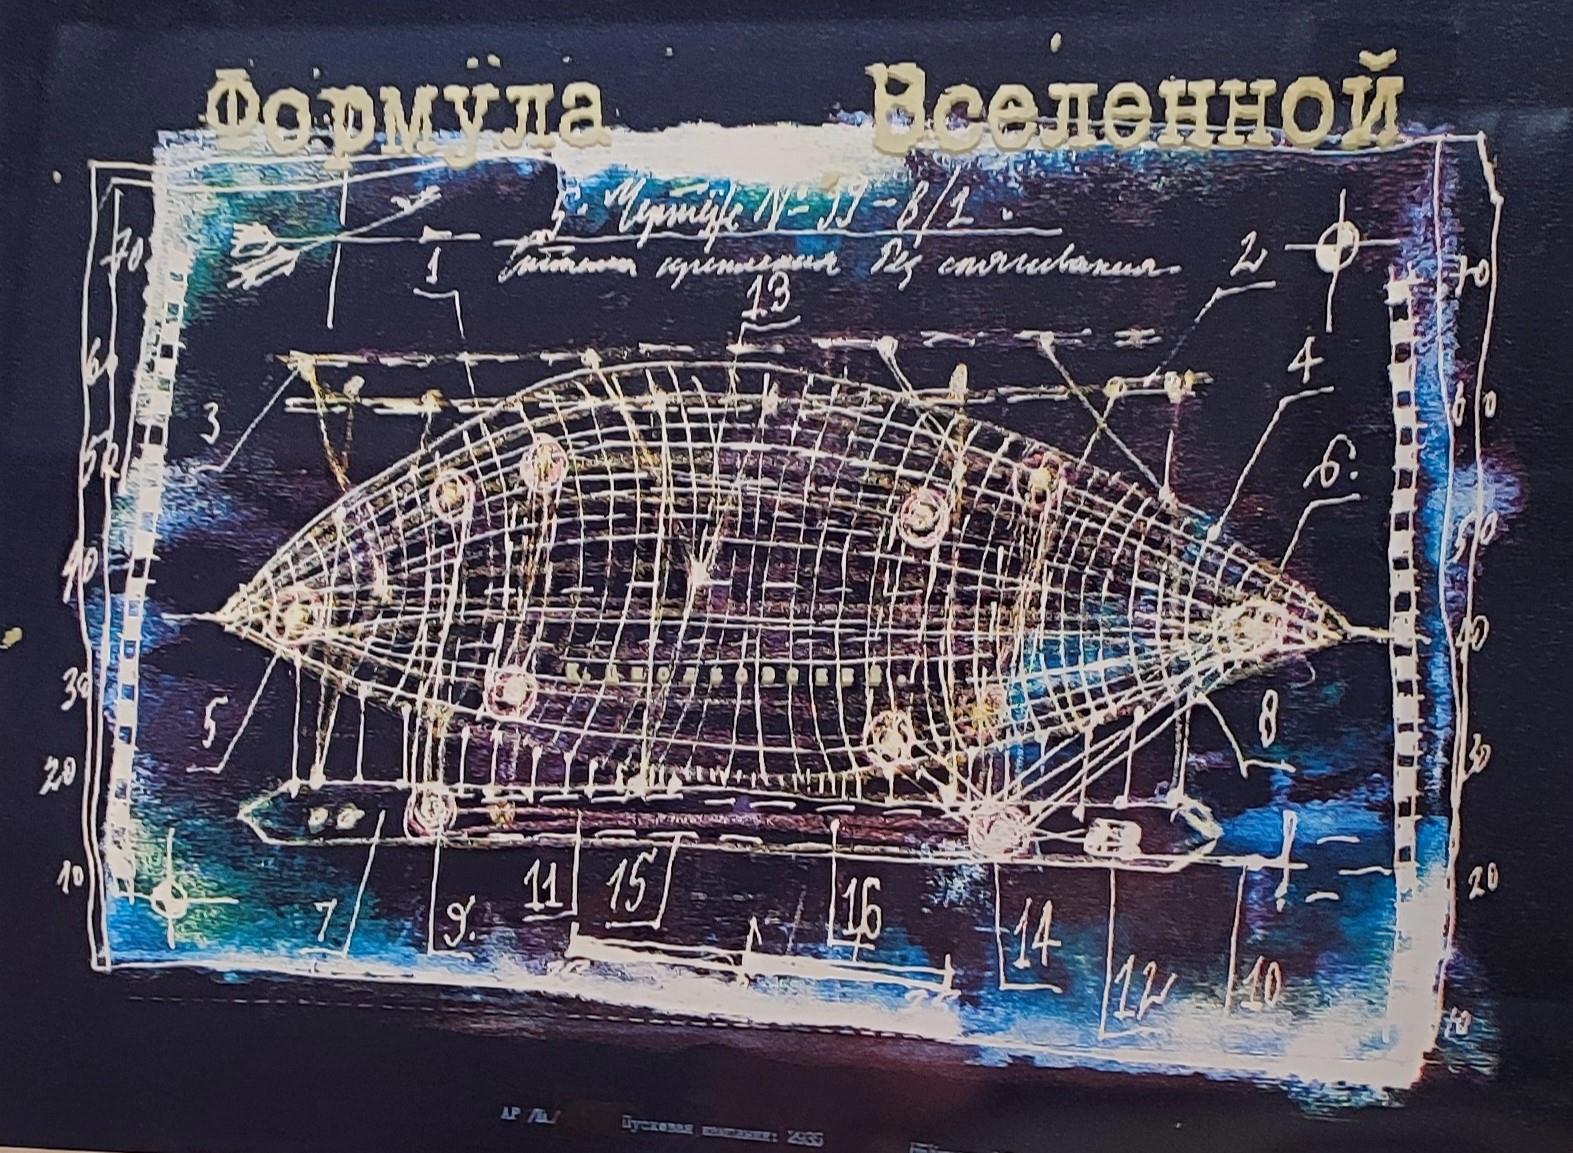 Формула Вселенной
Чертёж № 99-8/1.
Система крепления без стягивания.
70 1 2 70
13
60 3 4 60
50 6. 50
40 40
Циолковский.
30 5 8 30
20
10 7 9. 11 15 16 14 12 10 20
10
АР /Ли/ Пусковая компания: 2935